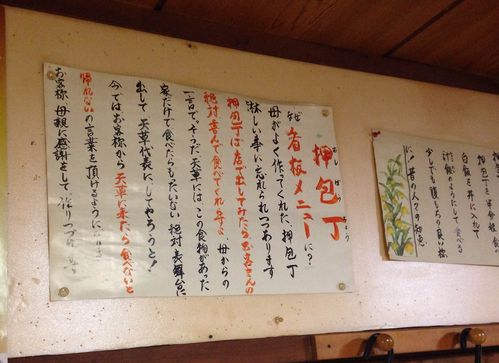 押包丁
おし ぼう ちょう
看板メニューに?
母がよく作ってくれた押包丁
淋しい事に忘れられつつあります
押包丁は店で出してみたらお客さんの
絶対喜んでくれるヨ 母からの
一言で、そうだ天草には、この食物があった
家だけで食べたらもったいない絶対表舞台に
出して天草代表にしてやろうと!
今ではお客様から天草に来たら食べないと
帰れないの言葉を頂けるように
お客様 母親に感謝をして、作りつづ
白飯を丼に入れて
汁飯のようにして食べる
少しでも腹もちの良い様
に!昔の人々の知恵